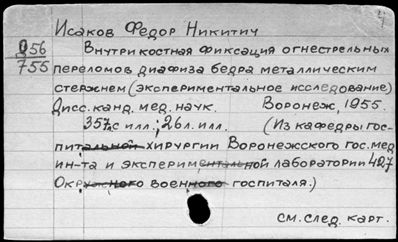 Исаков Федор Никитич
956 Внутрикостная фиксация огнестрельных
755 переломов диафиза бедра металлическим
стержнем (экспериментальное исследование)
Дисс. канд. мед. наук. Воронеж, 1955.
357с илл.; 26л. илл. (Из кафедры гос-
питальной хирургии Воронежского гос. мед.
ин-та и экспериментальной лаборатории 427
Окружного военного госпиталя.)
см. след. карт.